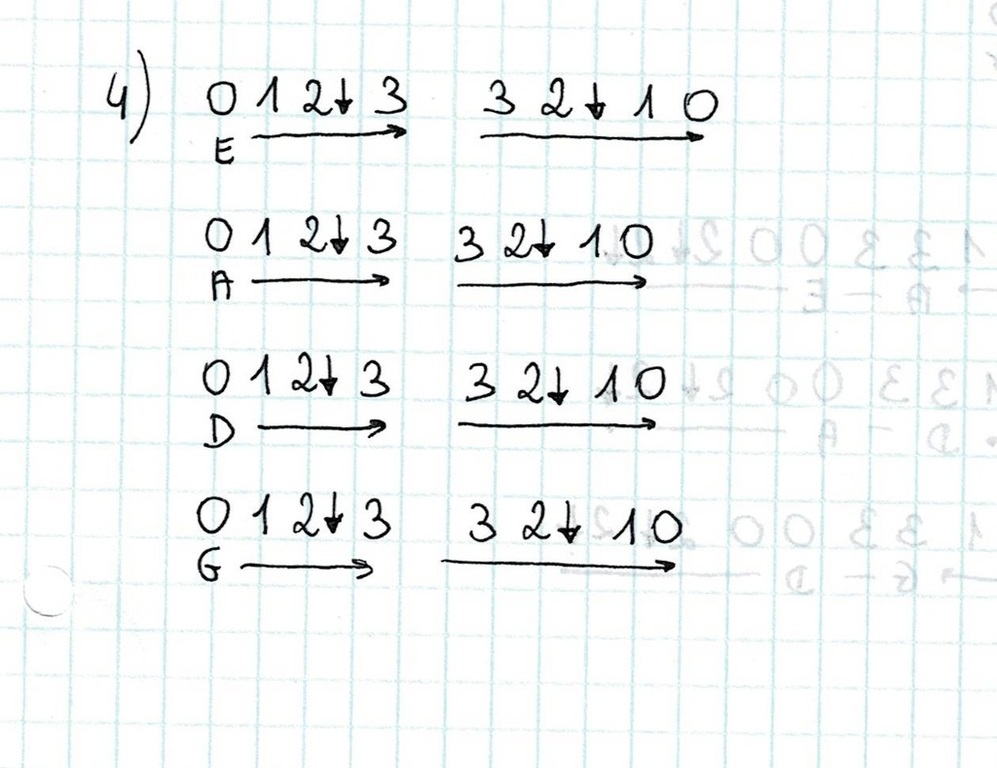 4) 0 1 2↓ 3 3 2↓ 1 0
E →  →
0 1 2↓ 3 3 2↓ 1 0
A →  →
0 1 2↓ 3 3 2↓ 1 0
D →  →
0 1 2↓ 3 3 2↓ 1 0
G →  →